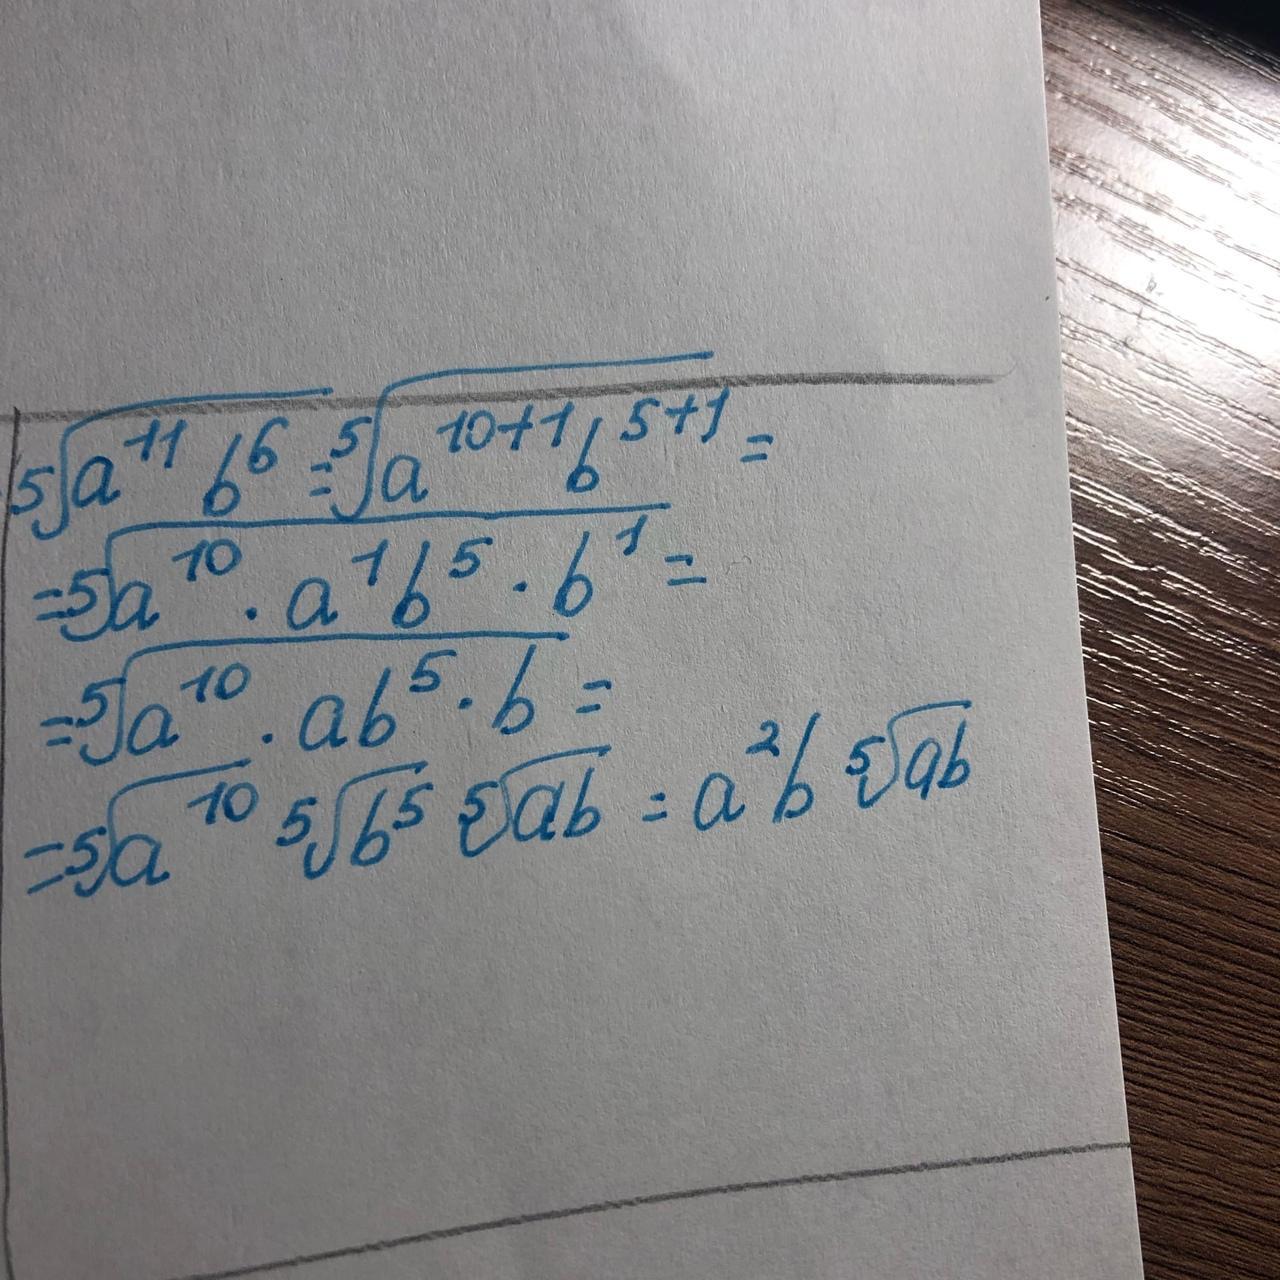 ⁵√(a¹¹ b⁶) = ⁵√(a¹⁰⁺¹ b⁵⁺¹) =
= ⁵√(a¹⁰ · a¹ b⁵ · b¹) =
= ⁵√(a¹⁰ · ab⁵ · b) =
= ⁵√a¹⁰ ⁵√b⁵ ⁵√(ab) = a²b ⁵√(ab)